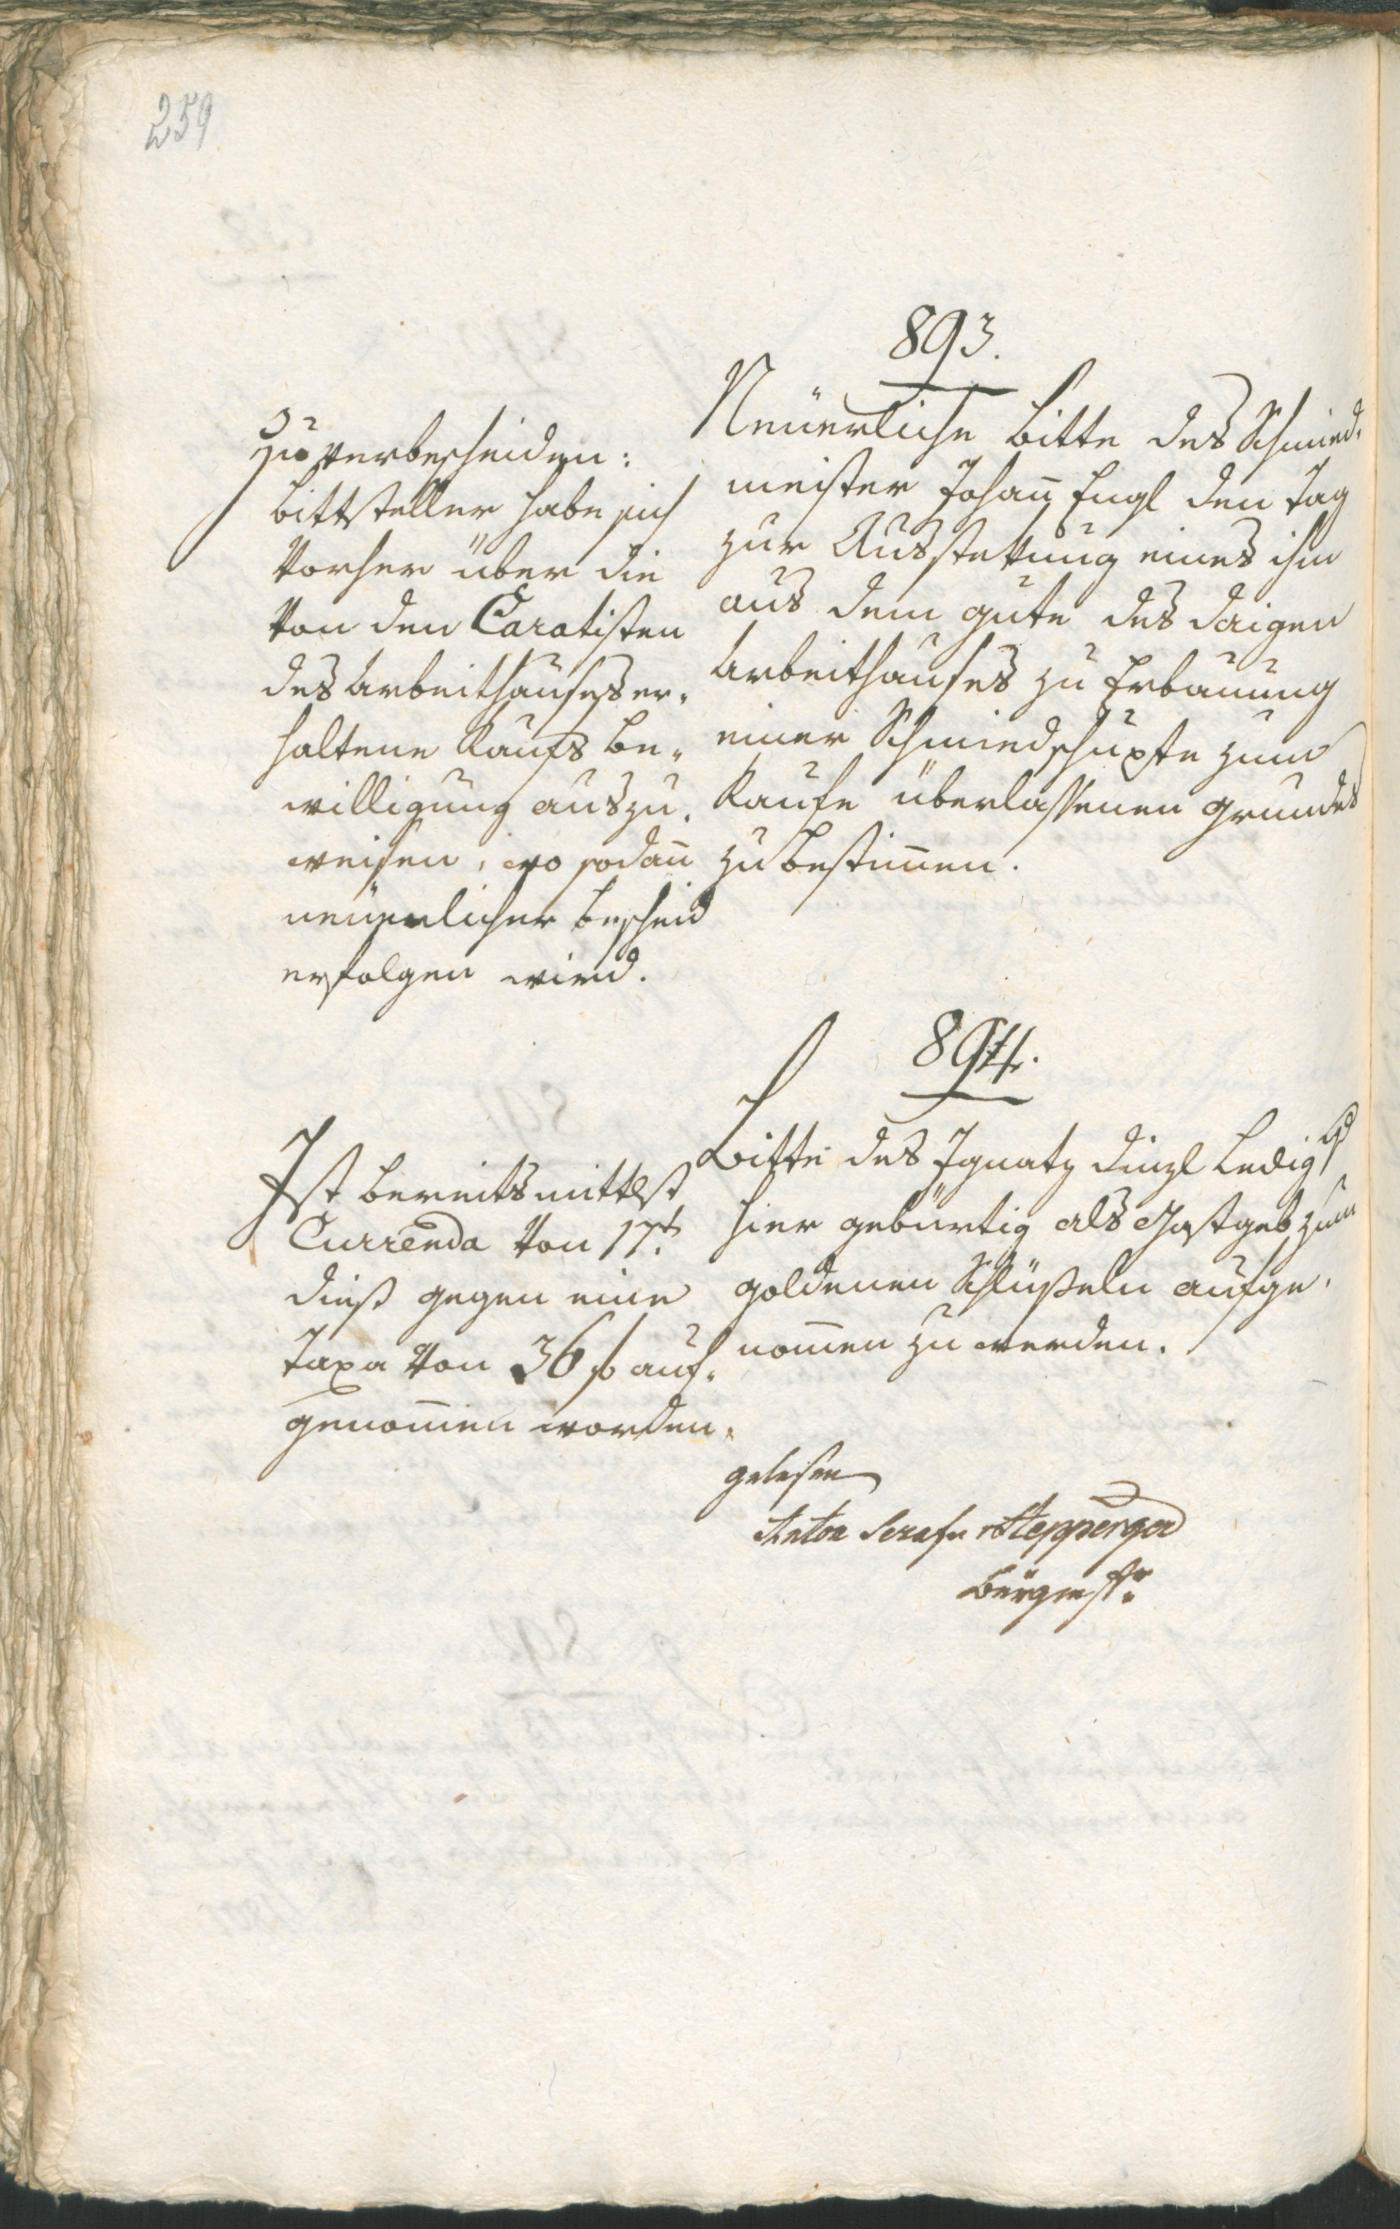 259
893.
Neüerliche Bitte des Schmied-
meister Johañ Engl den Tag
zur Aussteckung eines ihm
aus dem gute des daigen
Arbeitshauses zu Erbauung
einer Schmiedschupfe zum
Kaufe überlassenen grundes
zu bestim̅en.
Zu verbescheiden:
Bittsteller habe sich
Vorher über die
Von den Caratisten
des Arbeithauses er-
haltene Kaufs be-
willigung auszu-
weisen, wo sodañ
neüerlicher Bescheid
erfolgen wird.
894.
Bitte des Ignatz Dinzl Ledig
hier gebürtig als Gastgeb zum
goldenen Schlüßeln aufge-
nom̅en zu werden.
Ist bereits mittelst
Currenda Von 17t.
dieß gegen eine
Taxa Von 36 f auf-
genom̅en worden.
gelesen
Anton Serafin Stepperger
Bürgmstr.